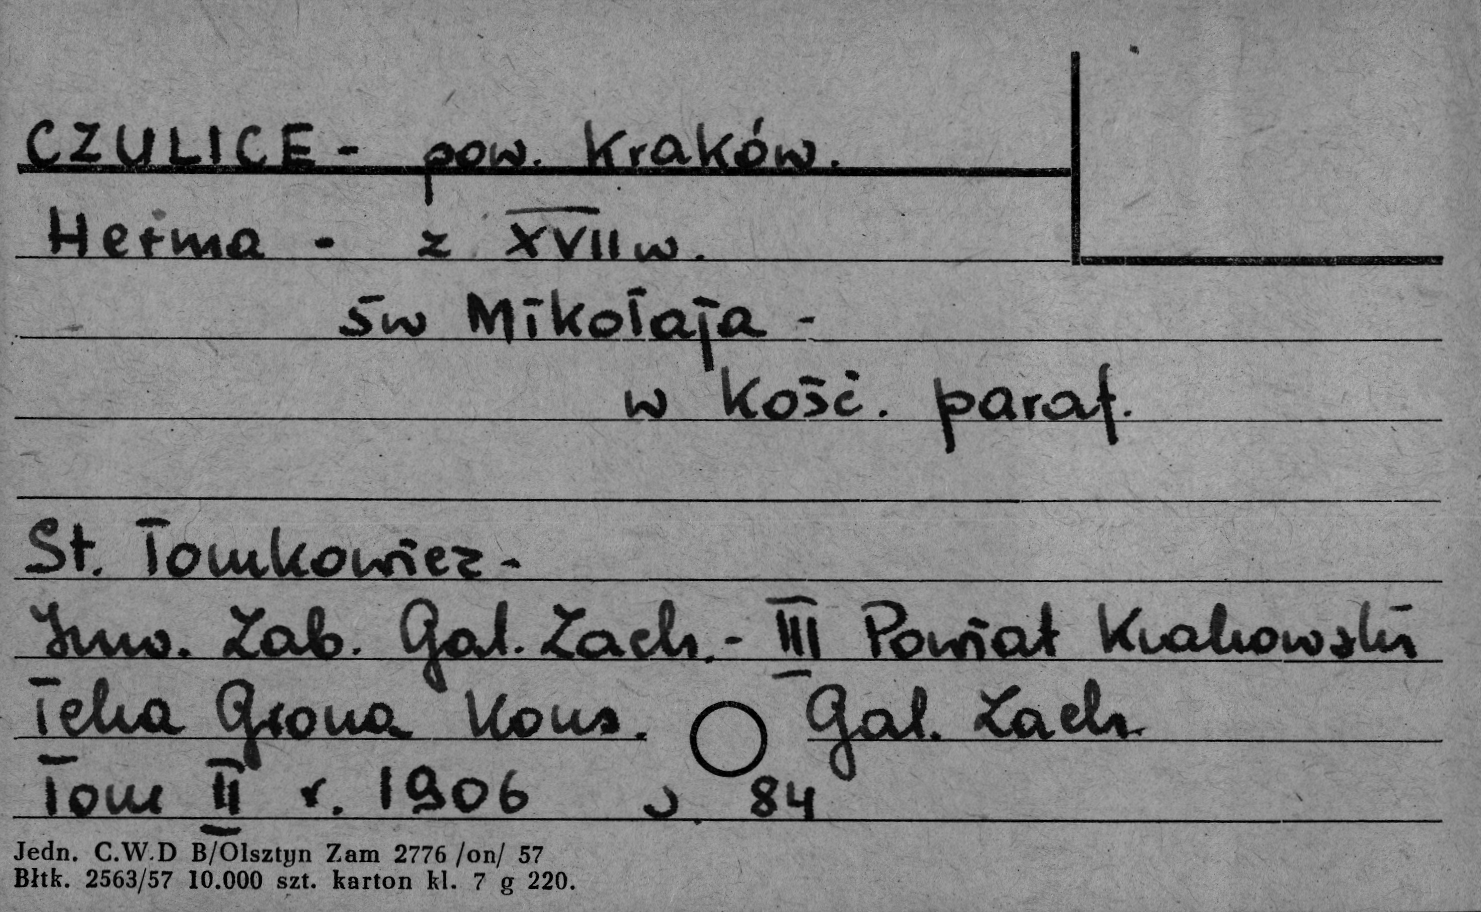 CZULICE - pow. Kraków.
Herma - z XVII w.
św Mikołaja -
w kość. paraf.
St. Tomkowicz -
Inw. Zab. Gal. Zach. - III Powiat Krakowski
Teka Grona Kons. Gal. Zach.
Tom II r. 1906 s. 84
Jedn. C.W.D B/Olsztyn Zam 2776 /on/ 57
Błtk. 2563/57 10.000 szt. karton kl. 7 g 220.